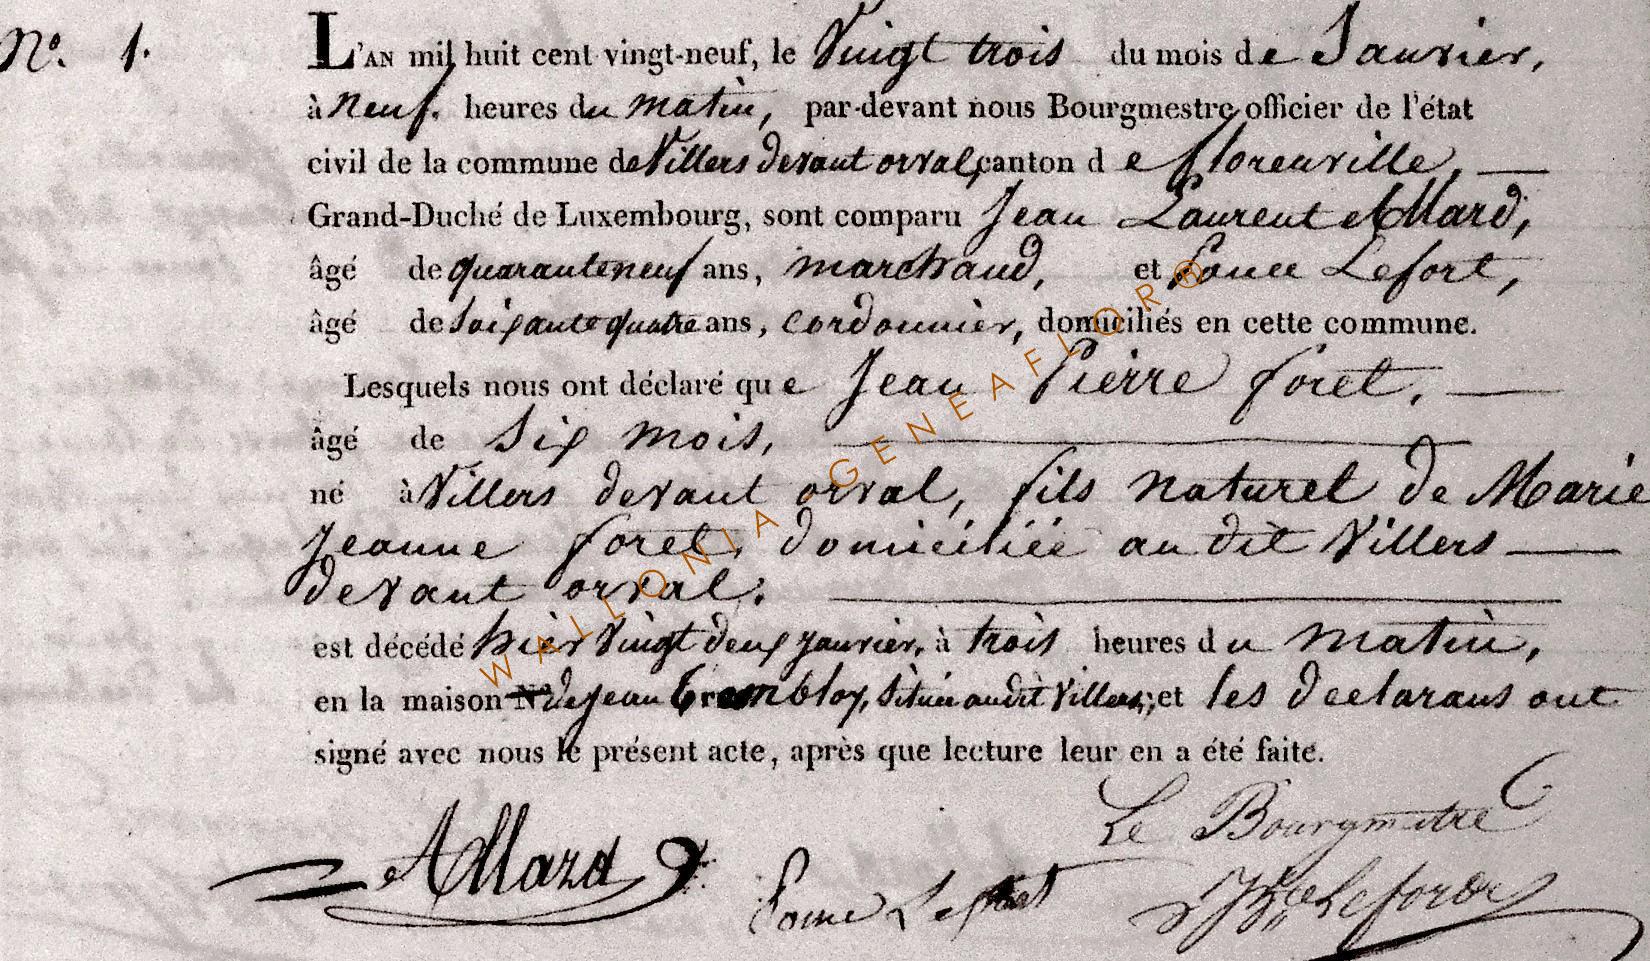 N.º 1.
L'AN mil huit cent vingt-neuf, le Vingt trois du mois de Janvier,
à neuf. heures du matin, par-devant nous Bourgmestre officier de l'état
civil de la commune de Villers devant orval, canton de florenville,
Grand-Duché de Luxembourg, sont comparu Jean Laurent Allard,
âgé de quarante neuf ans, marchand, et Lefort,
âgé de Soixante quatre ans, cordonnier, domiciliés en cette commune.
Lesquels nous ont déclaré que Jean Pierre foret,
âgé de Six mois,
né à Villers devant orval, fils naturel de Marie
Jeanne foret, domiciliée au dit Villers
devant orval;
est décédé hier Vingt deux janvier, à trois heures du matin,
en la maison N.º de jean trembloy, Située au dit Villers; et les declarans ont
signé avec nous le présent acte, après que lecture leur en a été faite.
Le Bourgmetre
Allard
Lefort
WALLONIA GENEAFLOR®